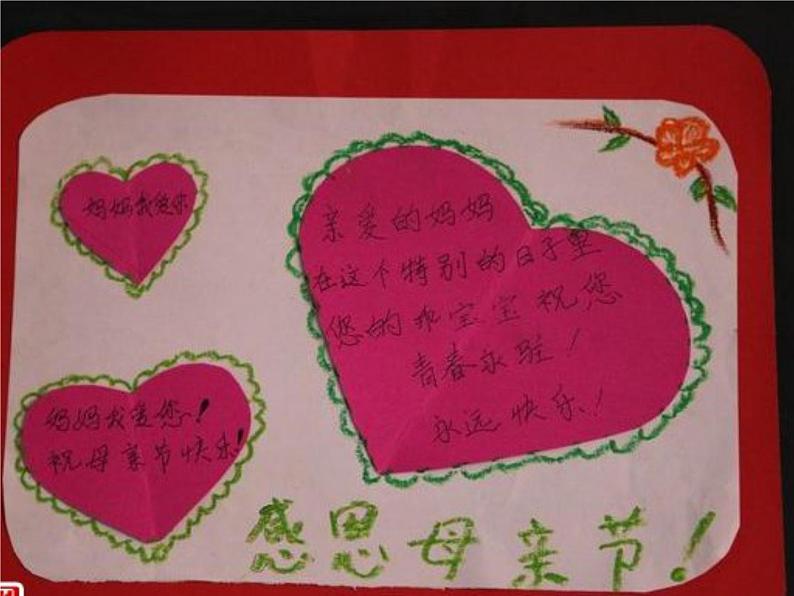 妈妈我爱你
亲爱的妈妈
在这个特别的日子里
您的乖宝宝祝您
青春永驻！
永远快乐！
妈妈我爱您！
祝母亲节快乐！
感恩母亲节！